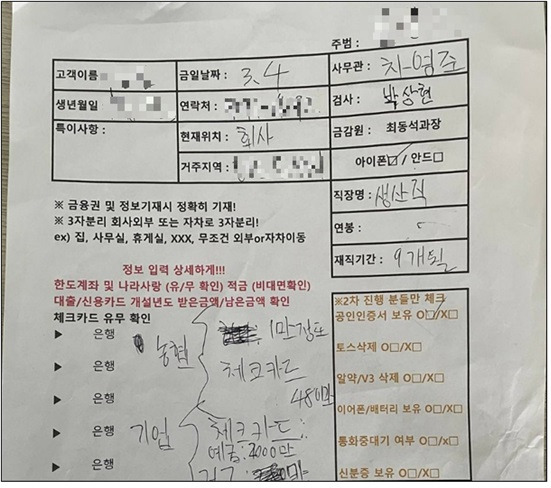 주범 :
고객이름
금일날짜 : 3.4
사무관 : 차영준
생년월일
연락처 :
검사 : 박상현
특이사항 :
현재위치 : 회사
금감원 : 최동석과장
거주지역 :
아이폰☑/ 안드☐
직장명 : 생산직
연봉 :
재직기간 : 9개월
※ 금융권 및 정보기재시 정확히 기재!
※ 3자분리 회사외부 또는 자차로 3자분리!
ex) 집, 사무실, 휴게실, XXX, 무조건 외부or자차이동
정보 입력 상세하게!!!
한도계좌 및 나라사랑 (유/무 확인) 적금 (비대면확인)
대출/신용카드 개설년도 받은금액/남은금액 확인
체크카드 유무 확인
▶ 은행 농협
1만정도
체크카드
48만
▶
▶ 은행 기업
체크카드
예금:2000만
▶ 은행
▶ 은행
※2차 진행 분들만 체크
공인인증서 보유 O☐/X☐
토스삭제 O☐/X☐
알약/V3 삭제 O☐/X☐
이어폰/배터리 보유 O☐/X☐
통화중대기 여부 O☐/x☐
신분증 보유 O☐/X☐